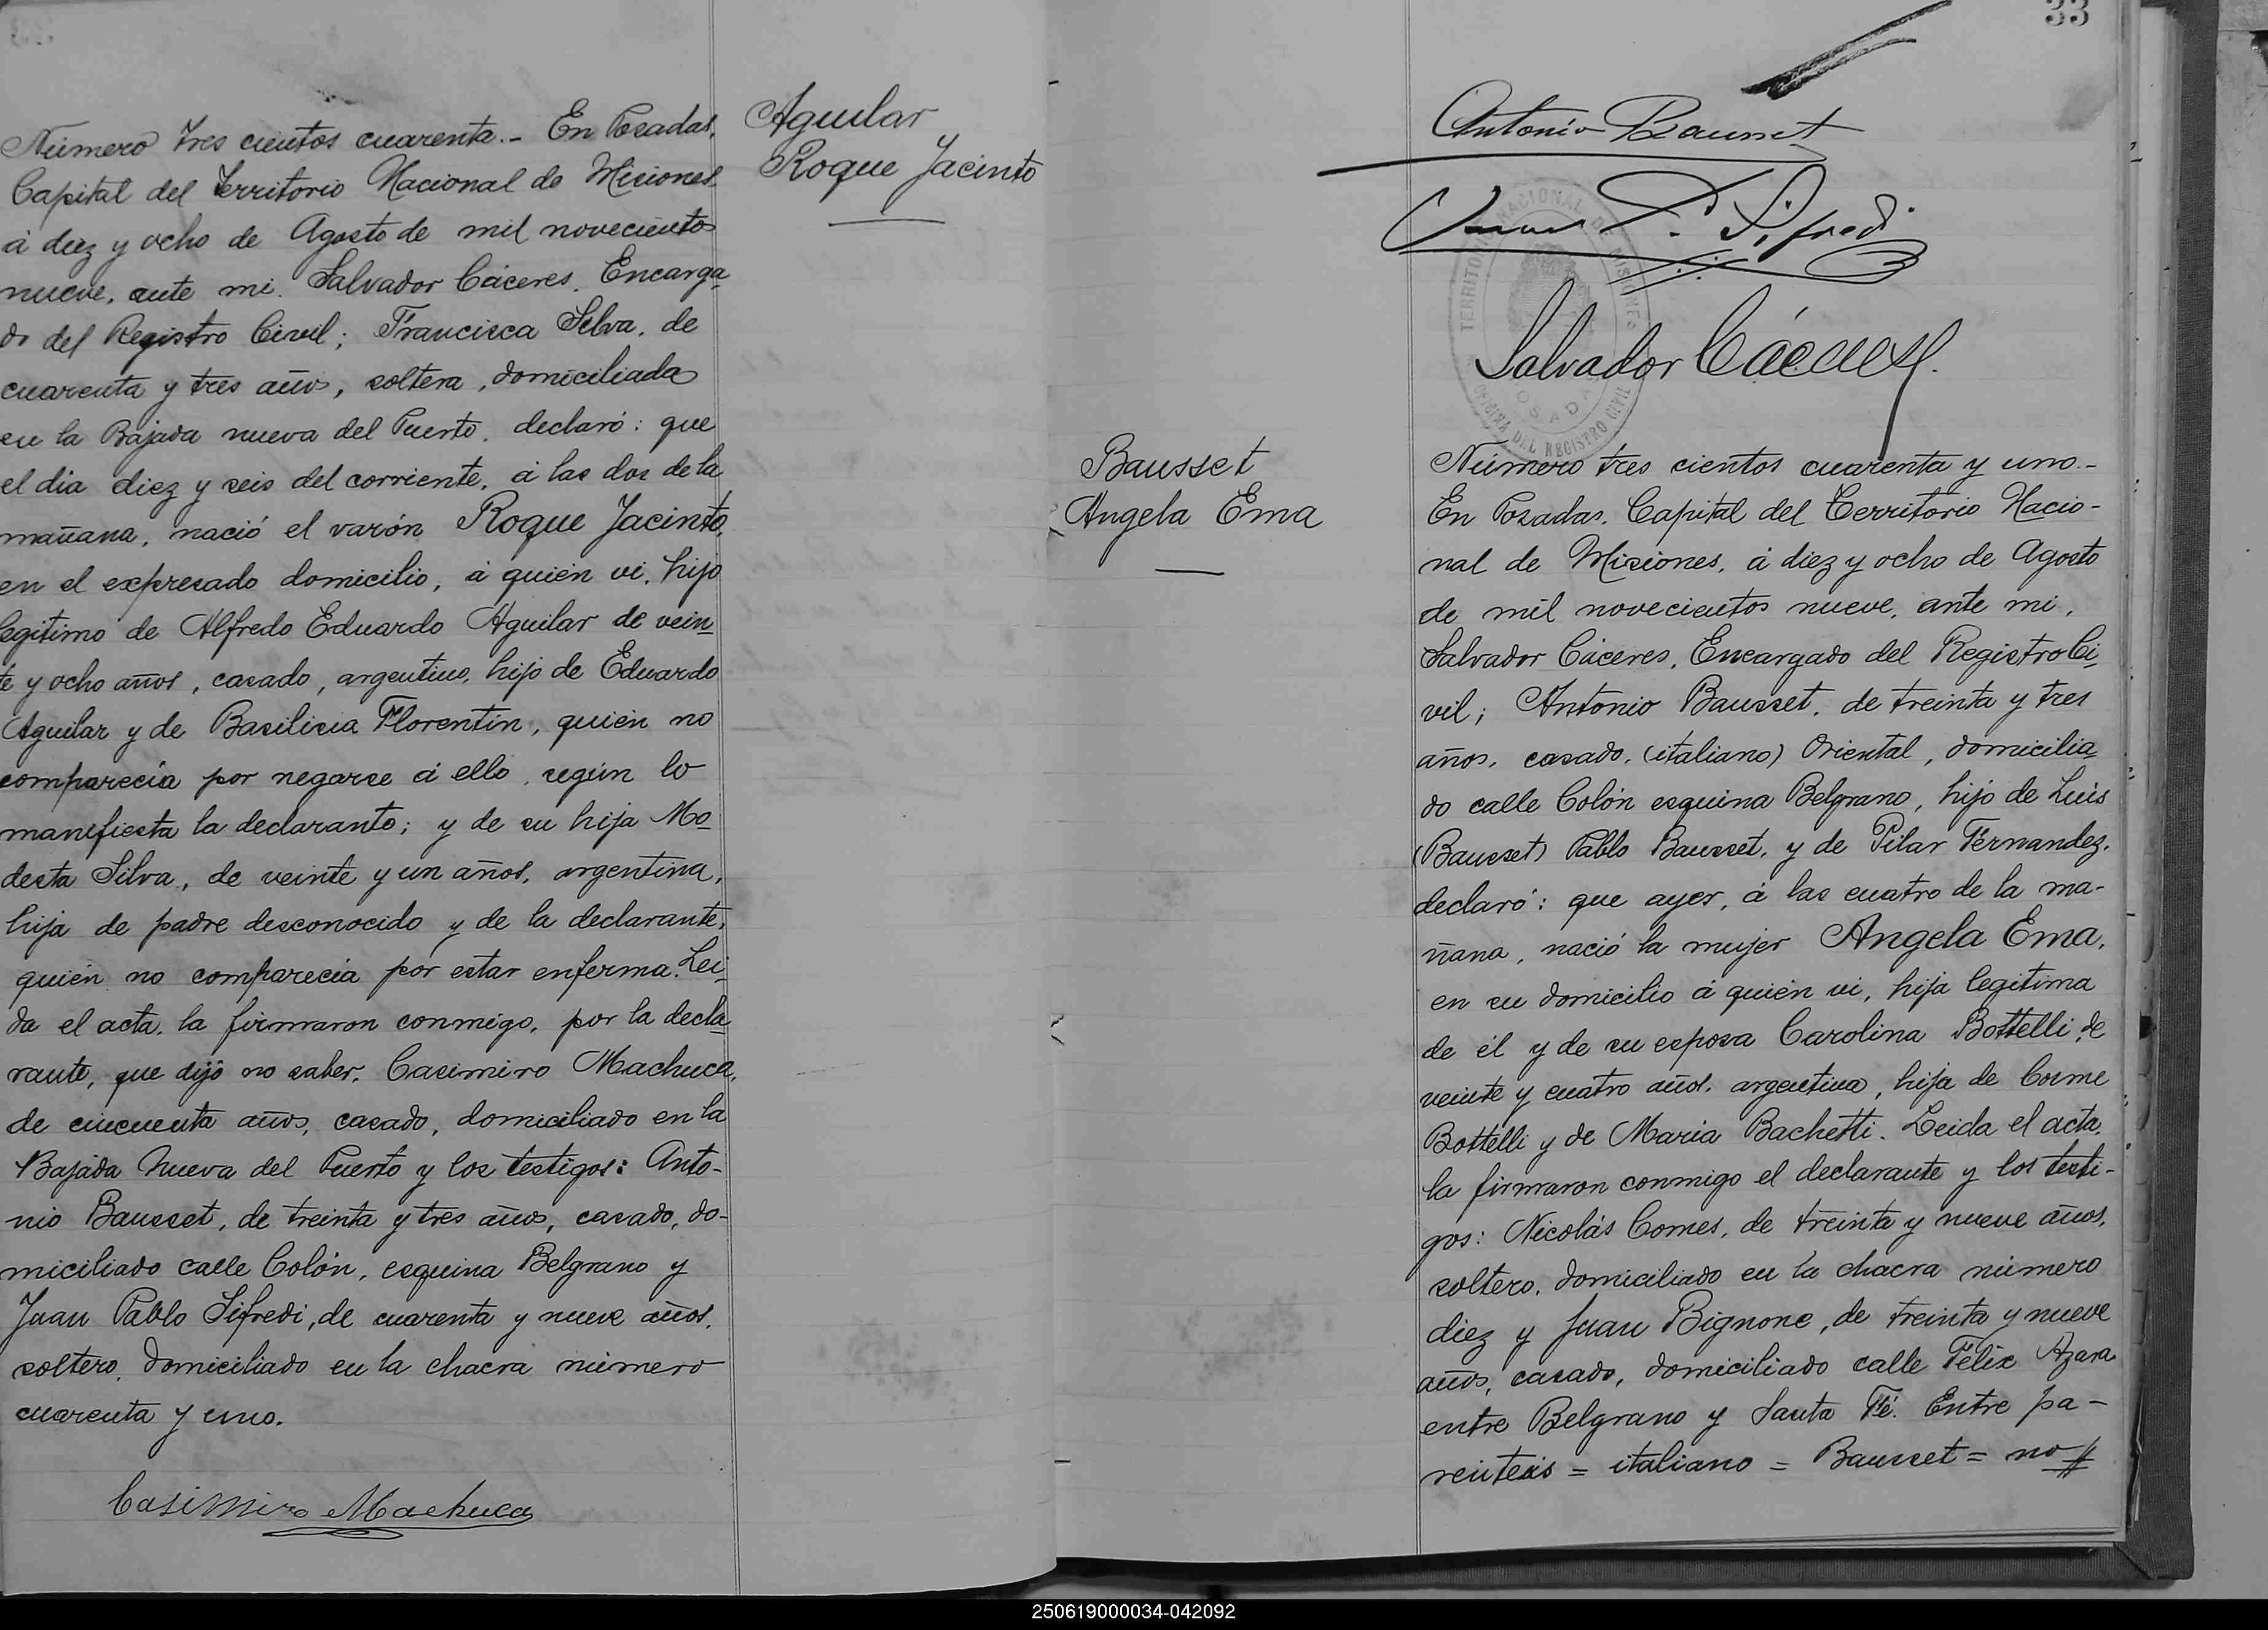 Número tres cientos cuarenta.- En Posadas,
Capital del Territorio Nacional de Misiones
á diez y ocho de Agosto de mil novecientos
nueve, ante mi. Salvador Cáceres. Encarga
do del Registro Civil; Francisca Silva, de
cuarenta y tres años, soltera, domiciliada
en la Bajada nueva del Puerto, declaró: que
el dia diez y seis del corriente, á las dos de la
mañana, nació el varón Roque Jacinto,
en el expresado domicilio, á quién vi, hijo
legitimo de Alfredo Eduardo Aguilar de vein
te y ocho años, casado, argentino, hijo de Eduardo
Aguilar y de Basilisia Florentin, quién no
comparecía por negarse á ello, según lo
manifiesta la declarante; y de su hija Mo
desta Silva, de veinte y un años, argentina,
hija de padre desconocido y de la declarante,
quién no comparecía por estar enferma. Lei
da el acta, la firmaron conmigo, por la decla
rante, que dijo no saber, Casimiro Machuca,
de cincuenta años, casado, domiciliado en la
Bajada Nueva del Puerto y los testigos: Anto-
nio Bausset, de treinta y tres años, casado, do-
miciliado calle Colón, esquina Belgrano y
Juan Pablo Sifredi, de cuarenta y nueve años,
soltero, domiciliado en la chacra número
cuarenta y uno.
Casimiro Machuca
Aguilar
Roque Jacinto
33
Antonio Bausset
Juan P. Sifredi
TERRITORIO NACIONAL DE MISIONES
POSADAS
OFICINA DEL REGISTRO CIVIL
Salvador Cáceres.
Bausset
Angela Ema
Número tres cientos cuarenta y uno.-
En Posadas, Capital del Territorio Nacio-
nal de Misiones, á diez y ocho de Agosto
de mil novecientos nueve, ante mi,
Salvador Cáceres, Encargado del Registro Ci
vil; Antonio Bausset, de treinta y tres
años, casado, (italiano) Oriental, domicilia
do calle Colón esquina Belgrano, hijo de Luis
(Bausset) Pablo Bausset, y de Pilar Fernandez,
declaró: que ayer, á las cuatro de la ma-
ñana, nació la mujer Angela Ema,
en su domicilio á quién vi, hija legitima
de él y de su esposa Carolina Bottelli, de
veinte y cuatro años, argentina, hija de Cosme
Bottelli y de Maria Bachetti. Leida el acta,
la firmaron conmigo el declarante y los testi-
gos: Nicolás Comes, de treinta y nueve años,
soltero, domiciliado en la chacra número
diez y Juan Bignone, de treinta y nueve
años, casado, domiciliado calle Félix Azara
entre Belgrano y Santa Fé. Entre pa-
rentesis = italiano = Bausset = no
250619000034-042092